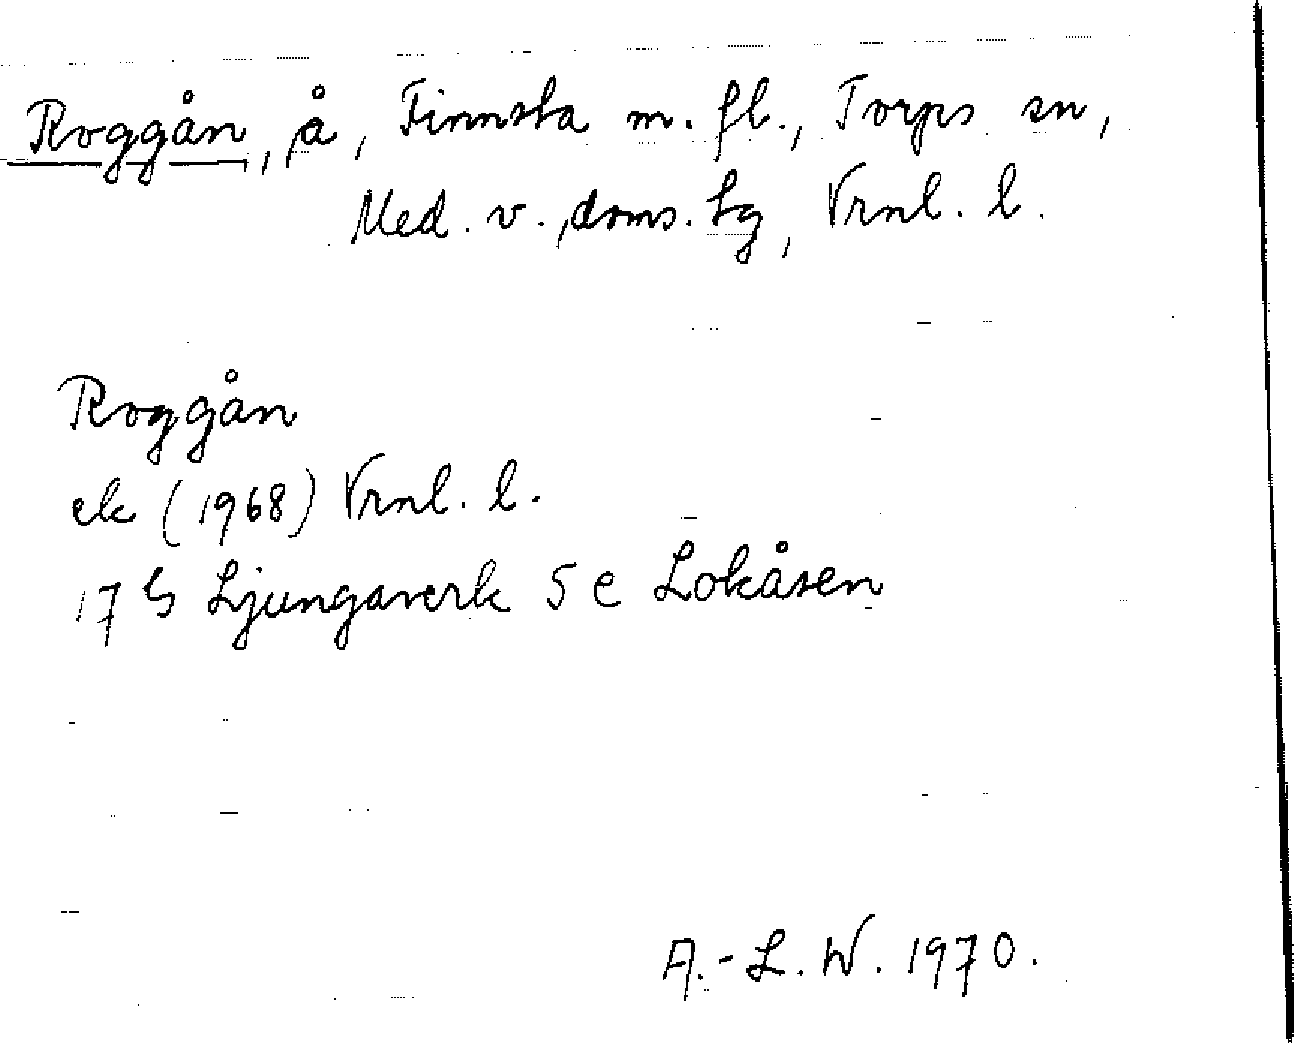 Roggån, å, Finnsta m. fl., Torps sn,
Med. v. doms. tg, Vrnl. l.
Roggån
ek (1968) Vrnl. l.
17 G Ljungaverk 5 e Lokåsen
A.-L. W. 1970.